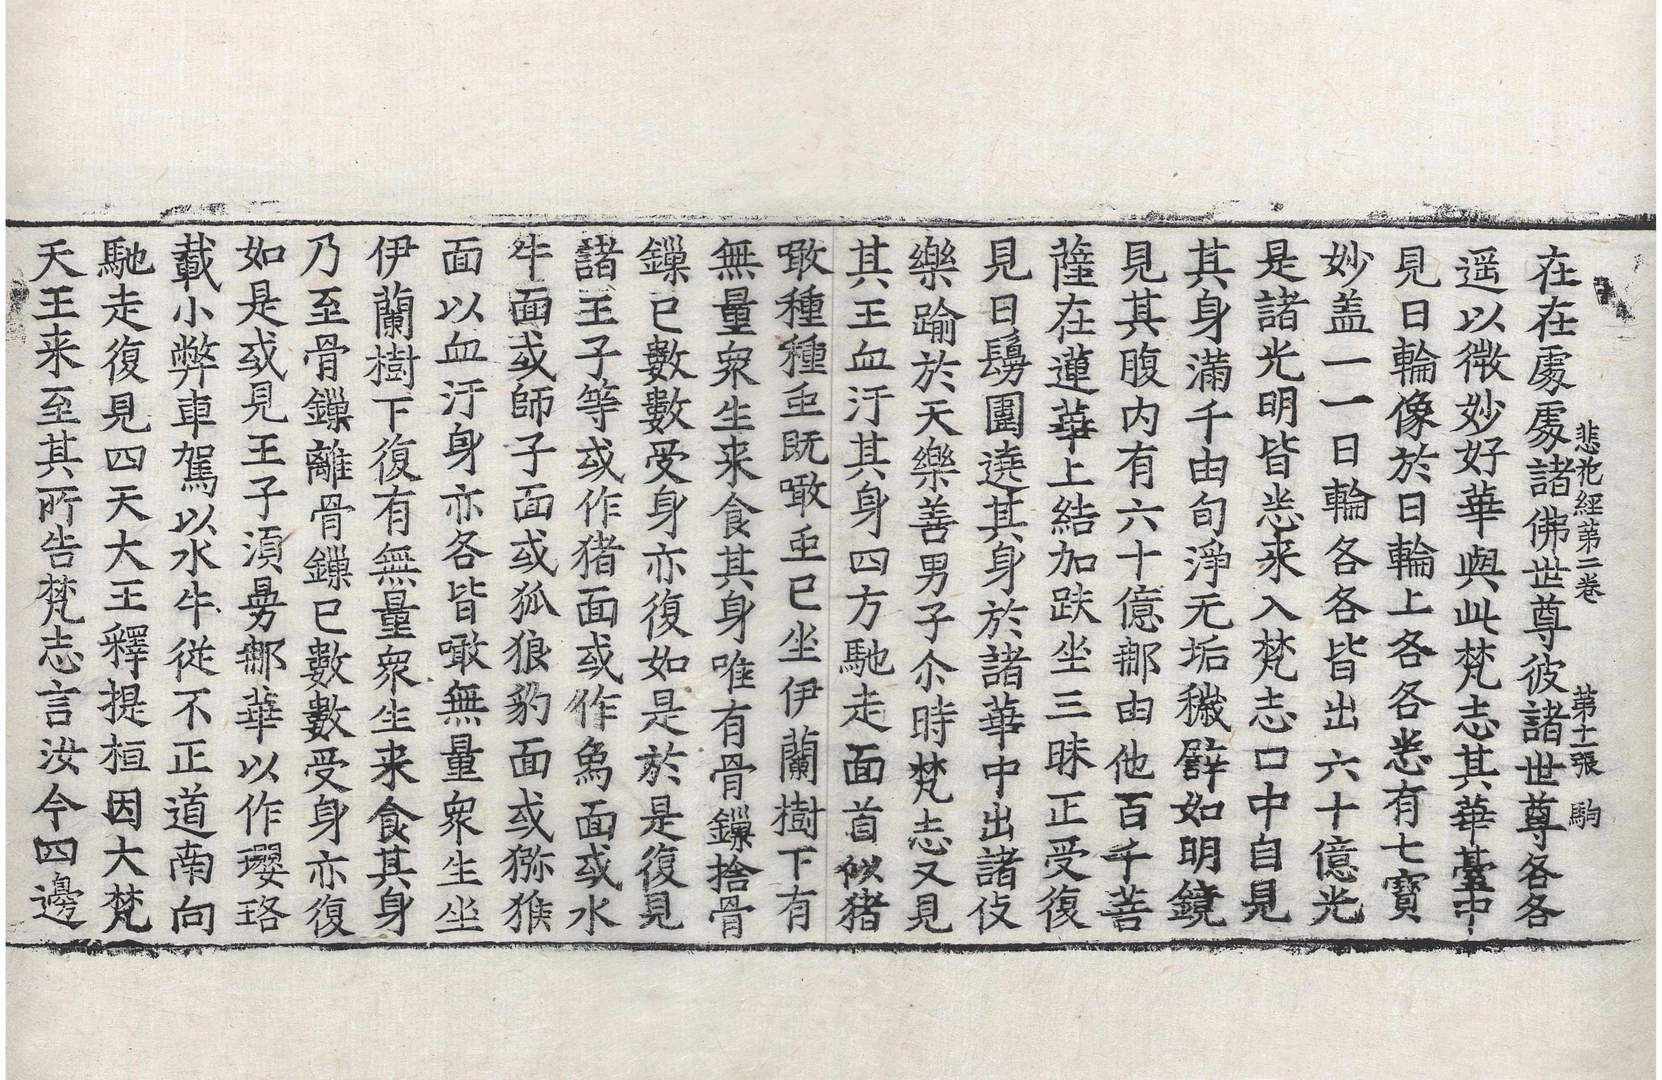 悲花經第二卷　第十一張　駒
在在處處諸佛世尊彼諸世尊各各
遥以微妙好華與此梵志其華臺中
見日輪像於日輪上各各悉有七寶
妙盖一一日輪各各皆出六十億光
是諸光明皆悉来入梵志口中自見
其身滿千由旬淨无垢穢譬如明鏡
見其腹内有六十億那由他百千菩
薩在蓮華上結加趺坐三昧正受復
見日鬘圍遶其身於諸華中出諸伎
樂踰於天樂善男子尒時梵志又見
其王血汙其身四方馳走面首似猪
噉種種䖝既噉䖝已坐伊蘭樹下有
無量衆生来食其身唯有骨鏁捨骨
鏁已數數受身亦復如是於是復見
諸王子等或作猪面或作象面或水
牛面或師子面或狐狼豹面或猕猴
面以血汙身亦各皆噉無量衆生坐
伊蘭樹下復有無量衆生来食其身
乃至骨鏁離骨鏁已數數受身亦復
如是或見王子湏曼那華以作瓔珞
載小弊車駕以水牛従不正道南向
馳走復見四天大王釋提桓因大梵
天王来至其所告梵志言汝今四邊